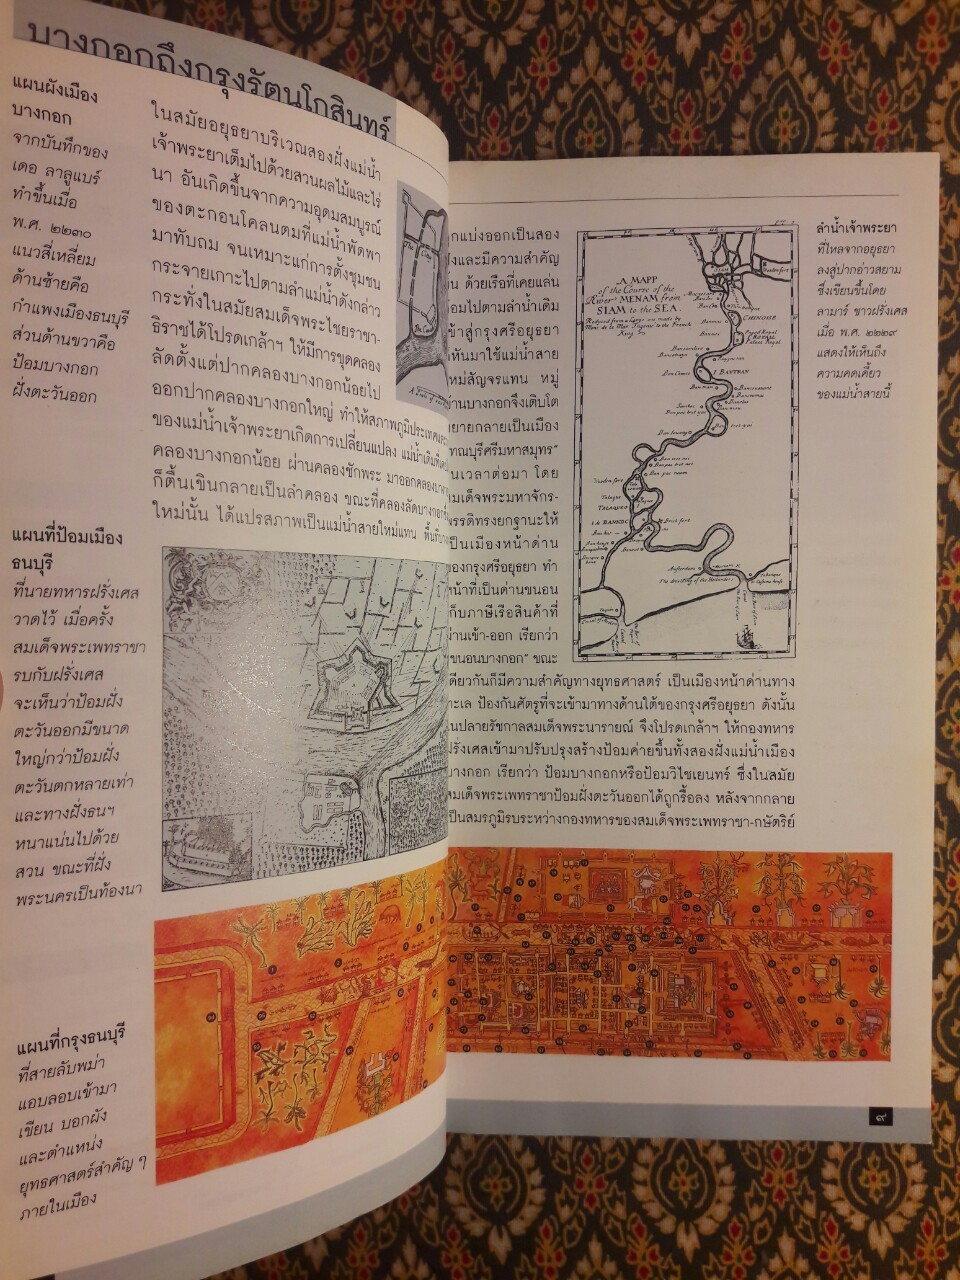 บางกอกถึงกรุงรัตนโกสินทร์
แผนผังเมือง
บางกอก
จากบันทึกของ
เดอ ลาลูแบร์
ทำขึ้นเมื่อ
พ.ศ. ๒๒๓๐
แนวสี่เหลี่ยม
ด้านซ้ายคือ
กำแพงเมืองธนบุรี
ส่วนด้านขวาคือ
ป้อมบางกอก
ฝั่งตะวันออก
ในสมัยอยุธยาบริเวณสองฝั่งแม่น้ำ
เจ้าพระยาเต็มไปด้วยสวนผลไม้และไร่
นา อันเกิดขึ้นจากความอุดมสมบูรณ์
ของตะกอนโคลนตมที่แม่น้ำพัดพา
มาทับถม จนเหมาะแก่การตั้งชุมชน
กระจายเกาะไปตามลำแม่น้ำดังกล่าว
กระทั่งในสมัยสมเด็จพระไชยราชา-
ธิราชได้โปรดเกล้าฯ ให้มีการขุดคลอง
ลัดตั้งแต่ปากคลองบางกอกน้อยไป
ออกปากคลองบางกอกใหญ่ ทำให้สภาพภูมิประเทศ
ของแม่น้ำเจ้าพระยาเกิดการเปลี่ยนแปลง แม่น้ำเดิม
คลองบางกอกน้อย ผ่านคลองชักพระ มาออกคลอง
ก็ตื้นเขินกลายเป็นลำคลอง ขณะที่คลองลัดบางกอก
ใหม่นั้น ได้แปรสภาพเป็นแม่น้ำสายใหม่แทน
แผนที่ป้อมเมือง
ธนบุรี
ที่นายทหารฝรั่งเศส
วาดไว้ เมื่อครั้ง
สมเด็จพระเพทราชา
รบกับฝรั่งเศส
จะเห็นว่าป้อมฝั่ง
ตะวันออกมีขนาด
ใหญ่กว่าป้อมฝั่ง
ตะวันตกหลายเท่า
และทางฝั่งธนฯ
หนาแน่นไปด้วย
สวน ขณะที่ฝั่ง
พระนครเป็นท้องนา
แผนที่กรุงธนบุรี
ที่สายลับพม่า
แอบลอบเข้ามา
เขียน บอกผัง
และตำแหน่ง
ยุทธศาสตร์สำคัญ ๆ
ภายในเมือง
ูกแบ่งออกเป็นสอง
และมีความสำคัญ
ด้วยเรือที่เคยแล่น
อมไปตามลำน้ำเดิม
ข้าสู่กรุงศรีอยุธยา
หันมาใช้แม่น้ำสาย
ใหม่สัญจรแทน หมู่
บ้านบางกอกจึงเติบโต
ขยายกลายเป็นเมือง
"ทณบุรีศรีมหาสมุทร"
ในเวลาต่อมา โดย
สมเด็จพระมหาจักร-
พรรดิทรงยกฐานะให้
เป็นเมืองหน้าด่าน
ของกรุงศรีอยุธยา ทำ
หน้าที่เป็นด่านขนอน
เก็บภาษีเรือสินค้าที่
ผ่านเข้า-ออก เรียกว่า
"ขนอนบางกอก" ขณะ
เดียวกันก็มีความสำคัญทางยุทธศาสตร์ เป็นเมืองหน้าด่านทาง
ทะเล ป้องกันศัตรูที่จะเข้ามาทางด้านใต้ของกรุงศรีอยุธยา ดังนั้น
ในปลายรัชกาลสมเด็จพระนารายณ์ จึงโปรดเกล้าฯ ให้กองทหาร
ฝรั่งเศสเข้ามาปรับปรุงสร้างป้อมค่ายขึ้นทั้งสองฝั่งแม่น้ำเมือง
บางกอก เรียกว่า ป้อมบางกอกหรือป้อมวิไชเยนทร์ ซึ่งในสมัย
สมเด็จพระเพทราชาป้อมฝั่งตะวันออกได้ถูกรื้อลง หลังจากกลาย
เป็นสมรภูมิรบระหว่างกองทหารของสมเด็จพระเพทราชา-กษัตริย์
A MAPP
of the Course of the
River MENAM from
SIAM to the SEA.
ลำน้ำเจ้าพระยา
ที่ไหลจากอยุธยา
ลงสู่ปากอ่าวสยาม
ซึ่งเขียนขึ้นโดย
ลามาร์ ชาวฝรั่งเศส
เมื่อ พ.ศ. ๒๒๒๙
แสดงให้เห็นถึง
ความคดเคี้ยว
ของแม่น้ำสายนี้
๙